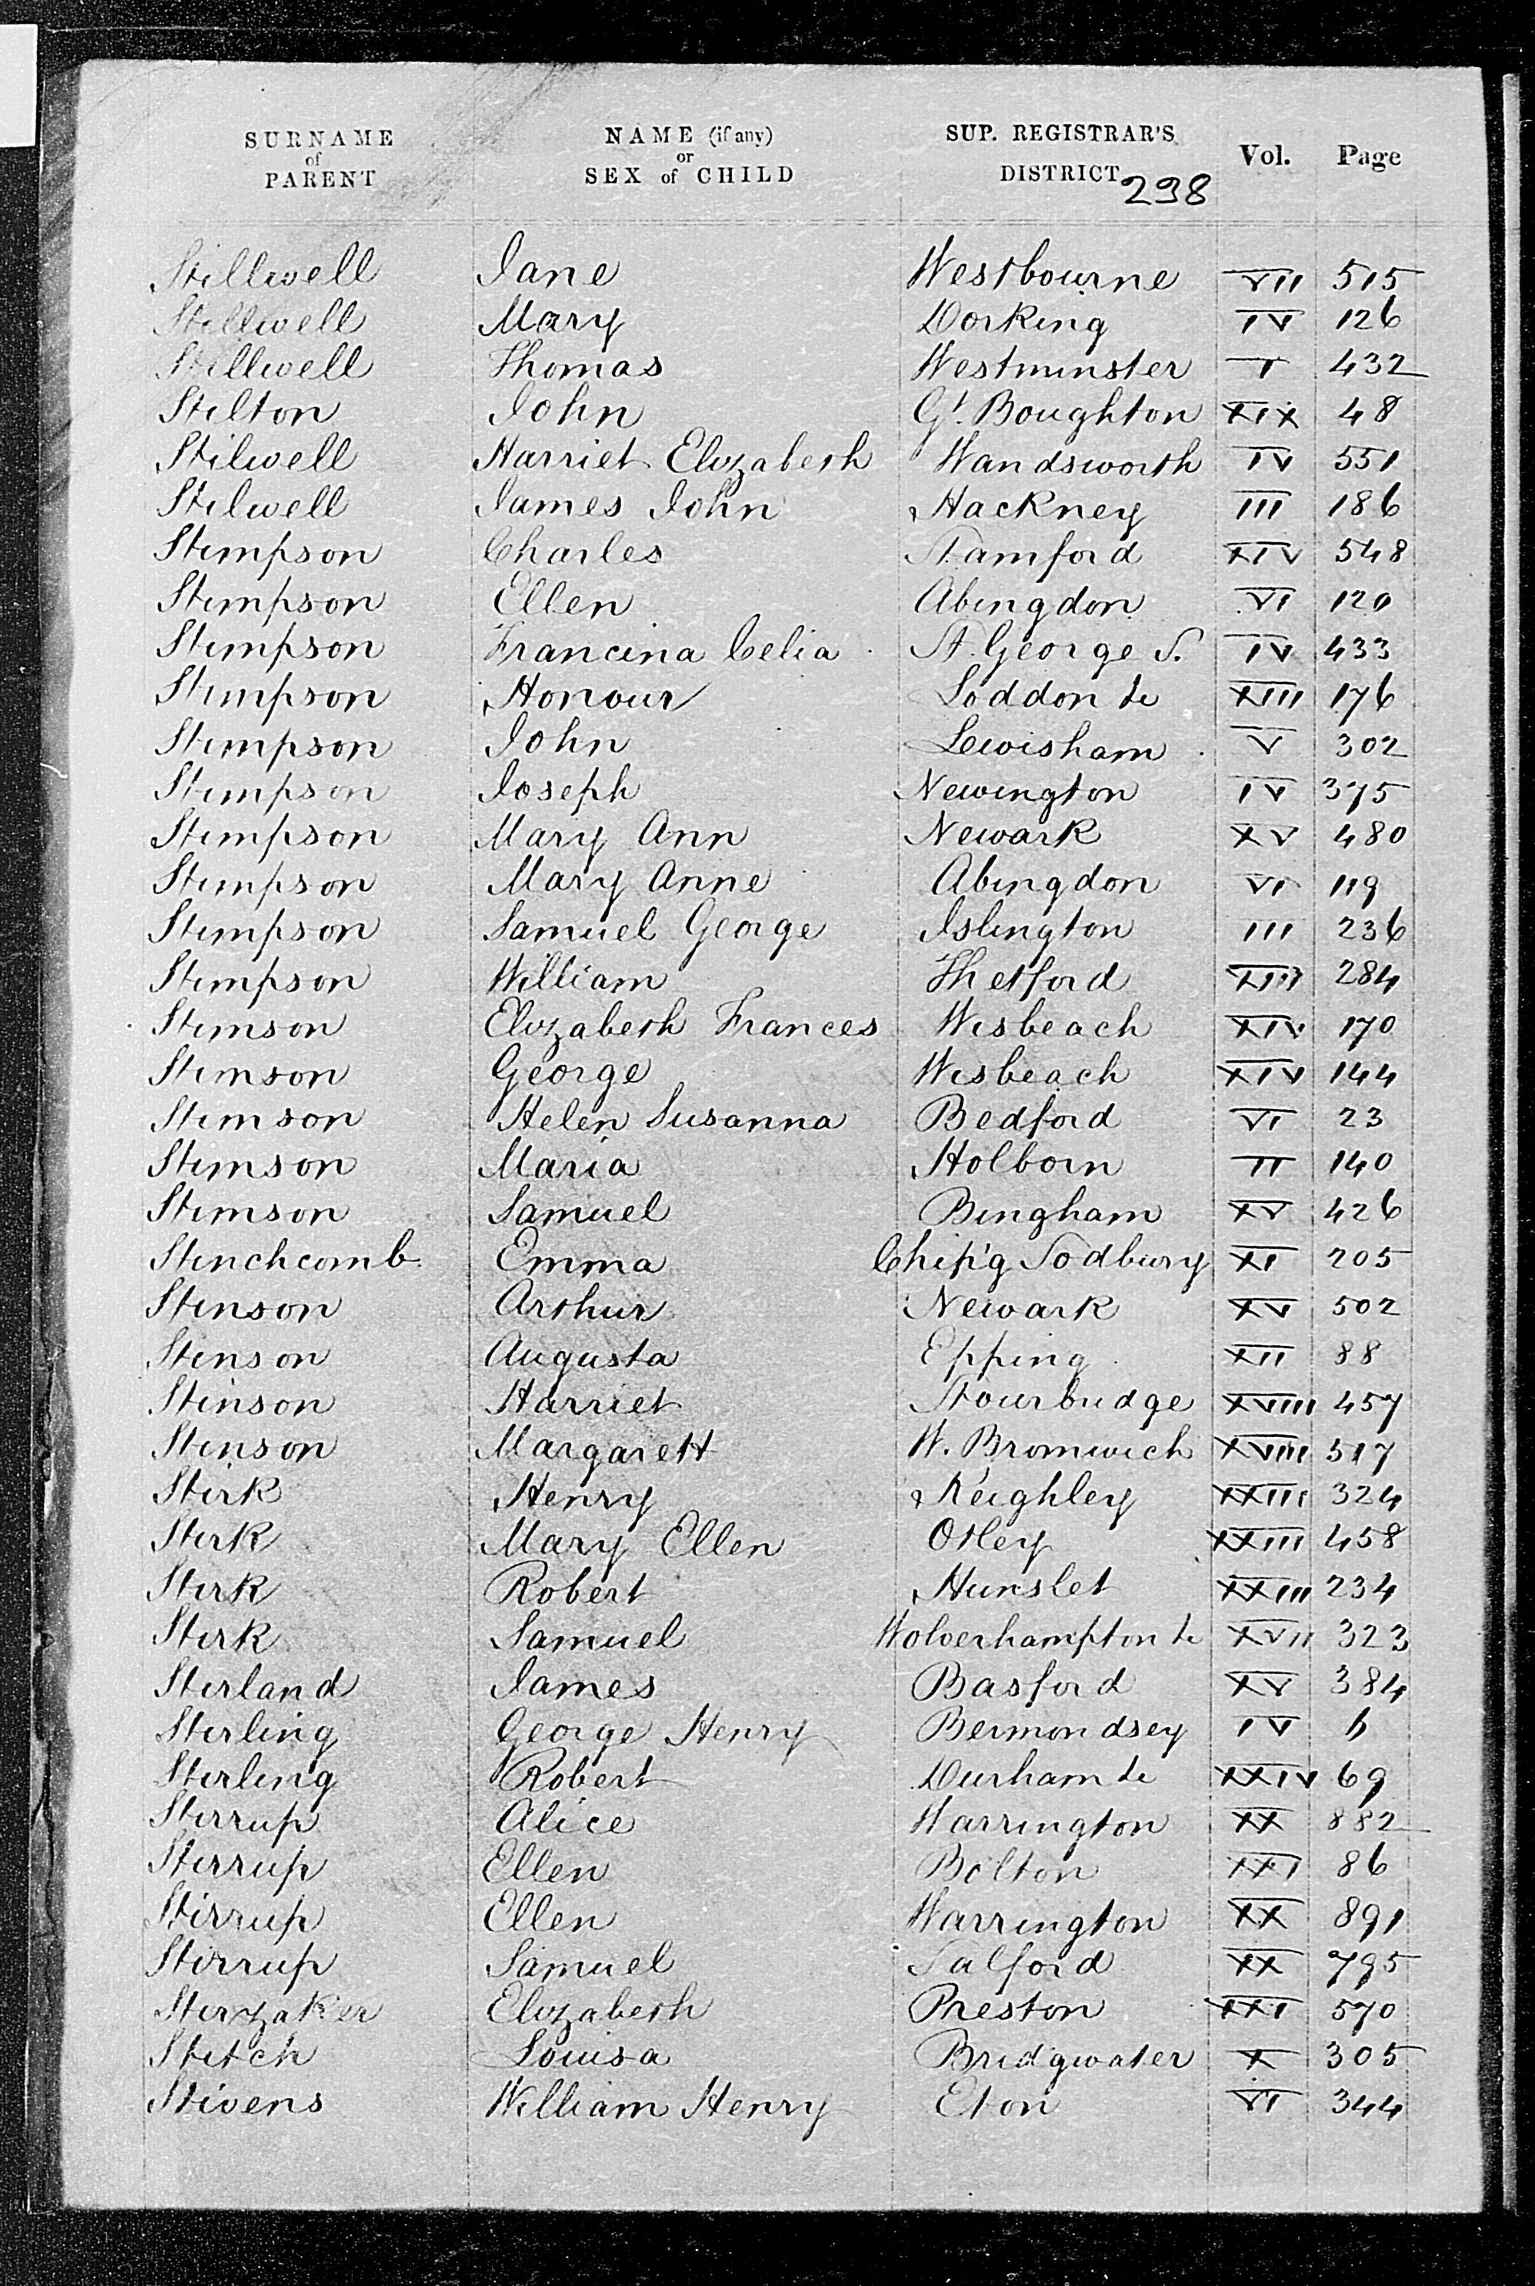 SURNAME of PARENT NAME (if any) or SEX of CHILD SUP. REGISTRAR'S DISTRICT Vol. Page
298
Stillwell Jane Westbourne VII 515
Stillwell Mary Dorking IV 126
Stillwell Thomas Westminster I 432
Stilton John Gt. Boughton XIX 48
Stilwell Harriet Elizabeth Wandsworth IV 551
Stilwell James John Hackney III 186
Stimpson Charles Stamford XIV 548
Stimpson Ellen Abingdon VI 120
Stimpson Francina Celia St. George S. IV 433
Stimpson Honour Loddon &c XIII 176
Stimpson John Lewisham V 302
Stimpson Joseph Newington IV 375
Stimpson Mary Ann Newark XV 480
Stimpson Mary Anne Abingdon VI 119
Stimpson Samuel George Islington III 236
Stimpson William Thetford XIII 284
Stimson Elizabeth Frances Wisbeach XIV 170
Stimson George Wisbeach XIV 144
Stimson Helen Susanna Bedford VI 23
Stimson Maria Holborn II 140
Stimson Samuel Bingham XV 426
Stinchcomb Emma Chip'g Sodbury XI 205
Stinson Arthur Newark XV 502
Stinson Augusta Epping XII 88
Stinson Harriet Stourbridge XVIII 457
Stinson Margarett W. Bromwich XVIII 517
Stirk Henry Keighley XXIII 324
Stirk Mary Ellen Otley XXIII 458
Stirk Robert Hunslet XXIII 234
Stirk Samuel Wolverhampton &c XVII 323
Stirland James Basford XV 384
Stirling George Henry Bermondsey IV 6
Stirling Robert Durham &c XXIV 69
Stirrup Alice Warrington XX 882
Stirrup Ellen Bolton XXI 86
Stirrup Ellen Warrington XX 891
Stirrup Samuel Salford XX 795
Stirzaker Elizabeth Preston XXI 570
Stitch Louisa Bridgwater X 305
Stivens William Henry Eton VI 344